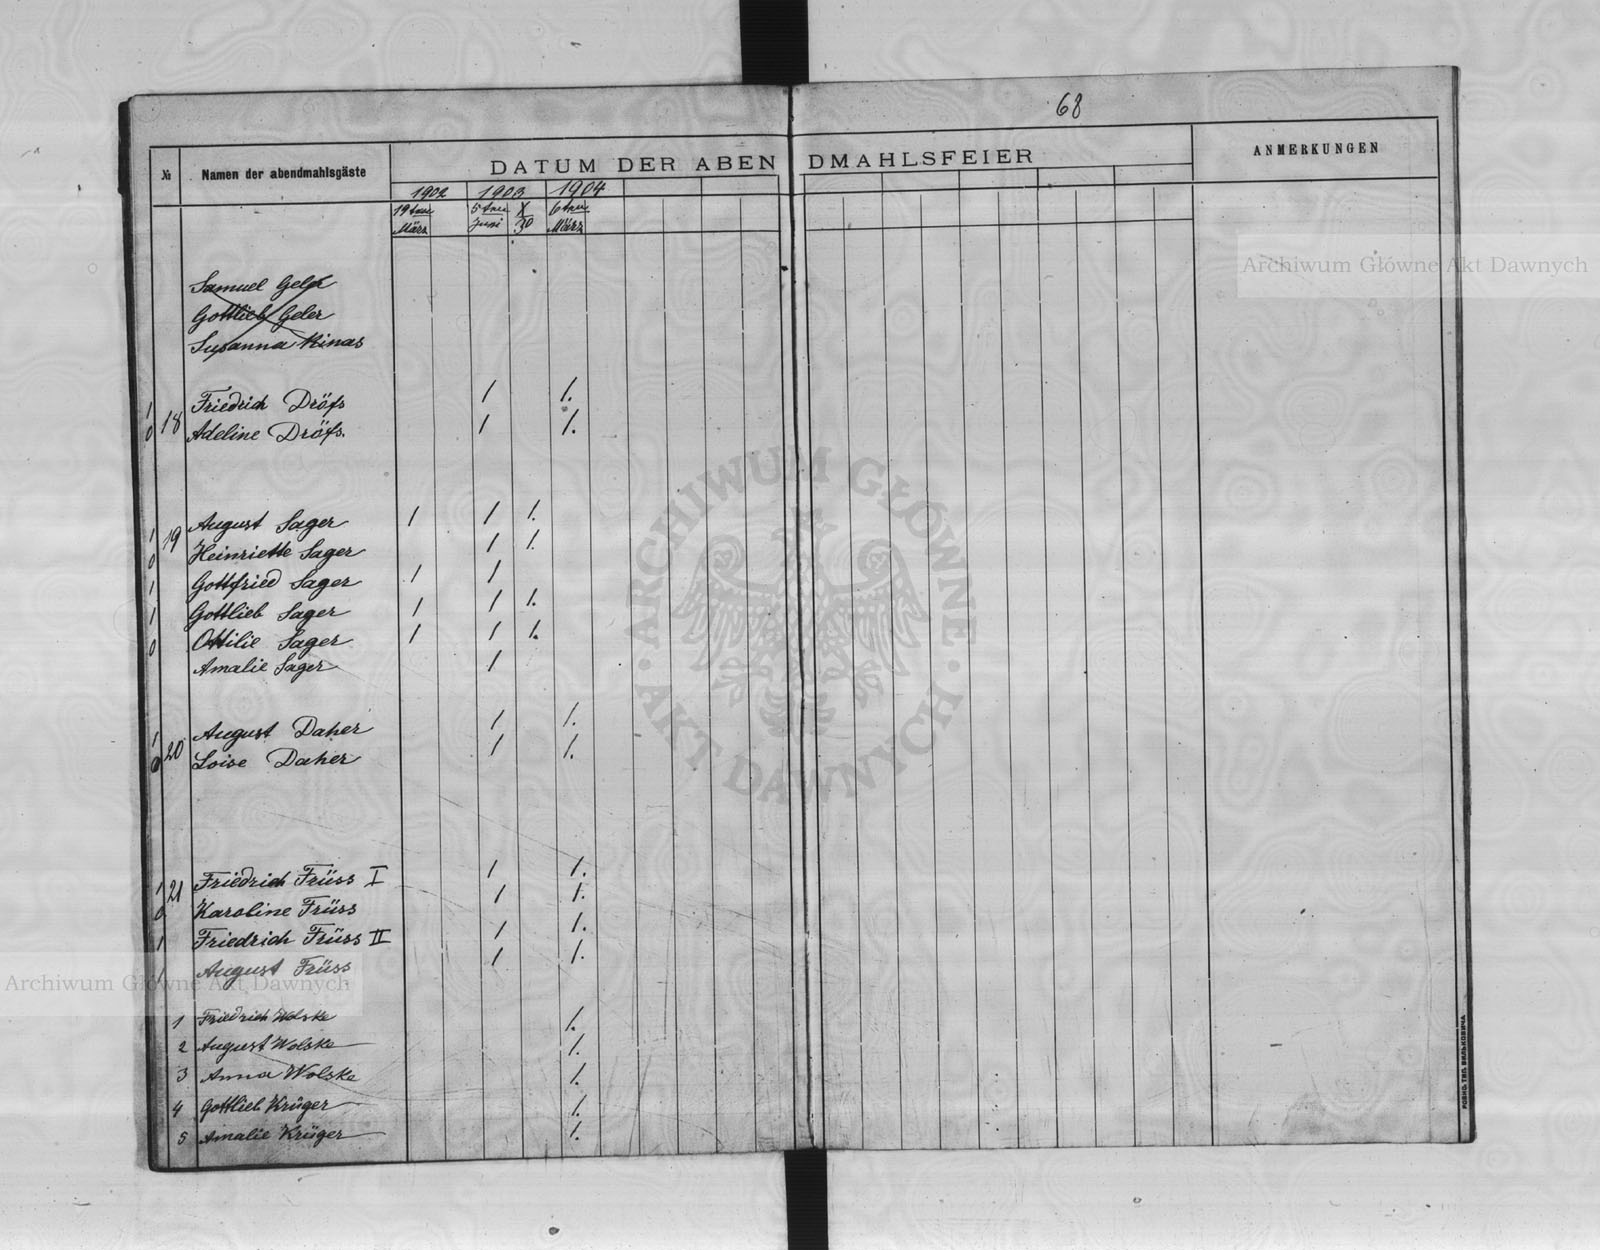 68
№ Namen der abendmahlsgäste DATUM DER ABENDMAHLSFEIER ANMERKUNGEN
1902 1903 1904
19ten März 5ten Juni X 30 6ten März
Samuel Geler
Gottlieb Geler
Susanna Kinas
1 Friedrich Dröfs 1 1.
0 18 Adeline Dröfs. 1 1.
1 19 August Sager 1 1 1.
0 Heinriette Sager 1 1.
1 Gottfried Sager 1 1
1 Gottlieb Sager 1 1 1.
0 Ottilie Sager 1 1 1.
Amalie Sager 1
1 20 August Daher 1 1.
0 Loise Daher 1 1.
1 21 Friedrich Früss I 1 1.
0 Karoline Früss 1 1.
1 Friedrich Früss II 1 1.
1 August Früss 1 1.
1 Friedrich Wolske 1.
2 August Wolske 1.
3 Anna Wolske 1.
4 Gottlieb Krüger 1.
5 Amalie Krüger 1.
РОВНО, ТИП. ВИЛЬКОВИЧА
Archiwum Główne Akt Dawnych
ARCHIWUM GŁÓWNE · AKT DAWNYCH ·
Archiwum Główne Akt Dawnych